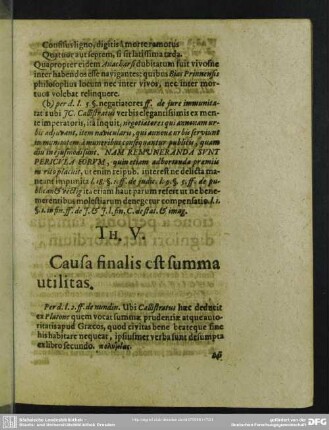 Consilus ligno, digitis à morte remotus
Quatuor aut septem, si sit latissima tæda.
Quapropter eidem Anacharsi dubitatum fuit vivosne
inter habendos esse navigantes; quibus Bias Prinnensis
philosophus locum nec inter vivos, nec inter mor-
tuos volebat relinquere.
(b) per d. l. 5 §. negatiatores ff. de jure immunita-
tat ubi JC. Callistratus verbis elegantissimis ex men-
te imperatoris, ita inquit,
adjuvant, item navicularii, qui annonæ urbis serviunt
immunitatem à muneribus consequuntur publicis, quam
diu in NAM REMUNERANDA SUNT
PERICULA EORUM, quin etiam adhortanda præmiis
merito placuit, ut enim reipub. interest ne delicta ma-
neant impunita
ita ejusdem haut parum resert ut ne bene-
merentibus molestiarum denegetur compensatio
§. 1. in fin. ff. de J. & J. l. fin. C. de stat. & imag.
TH. V.
Causa finalis est summa
utilitas.
Per d. l. 2. ff. de nundin. Ubi Callistratus hæc deducit
ex Platone quem vocat summæ prudentiæ atque auto-
ritatis apud Græcos, quod civitas bene beateque sine
his habitare nequeat, ipsiusmet verba sunt desumpta
ex libro secundo.